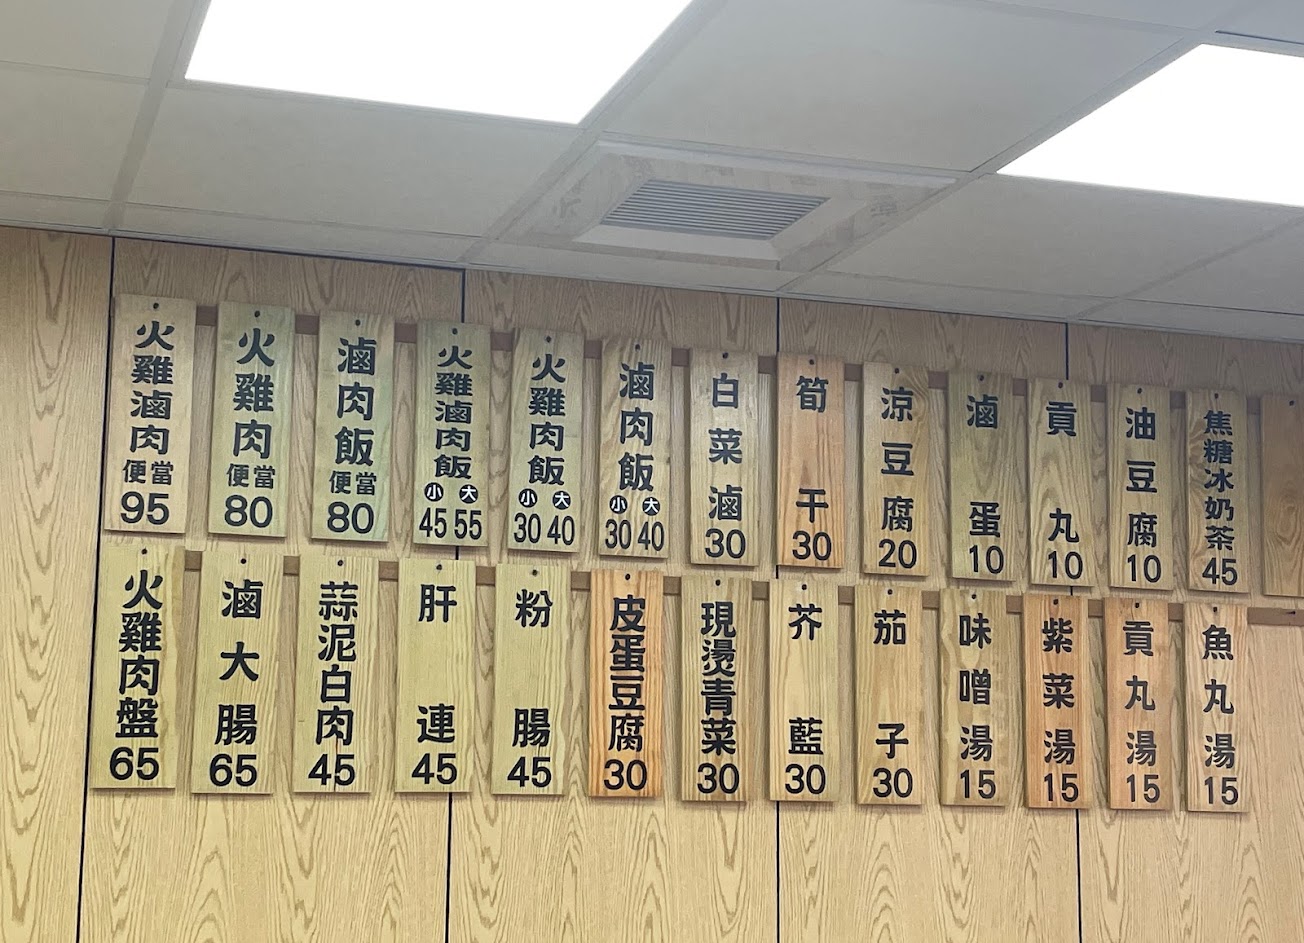 火雞滷肉便當95
火雞肉便當80
滷肉飯便當80
火雞滷肉飯小45大55
火雞肉飯小30大40
滷肉飯小30大40
白菜滷30
筍干30
涼豆腐20
滷蛋10
貢丸10
油豆腐10
焦糖冰奶茶45
火雞肉盤65
滷大腸65
蒜泥白肉45
肝連45
粉腸45
皮蛋豆腐30
現燙青菜30
芥藍30
茄子30
味噌湯15
紫菜湯15
貢丸湯15
魚丸湯15